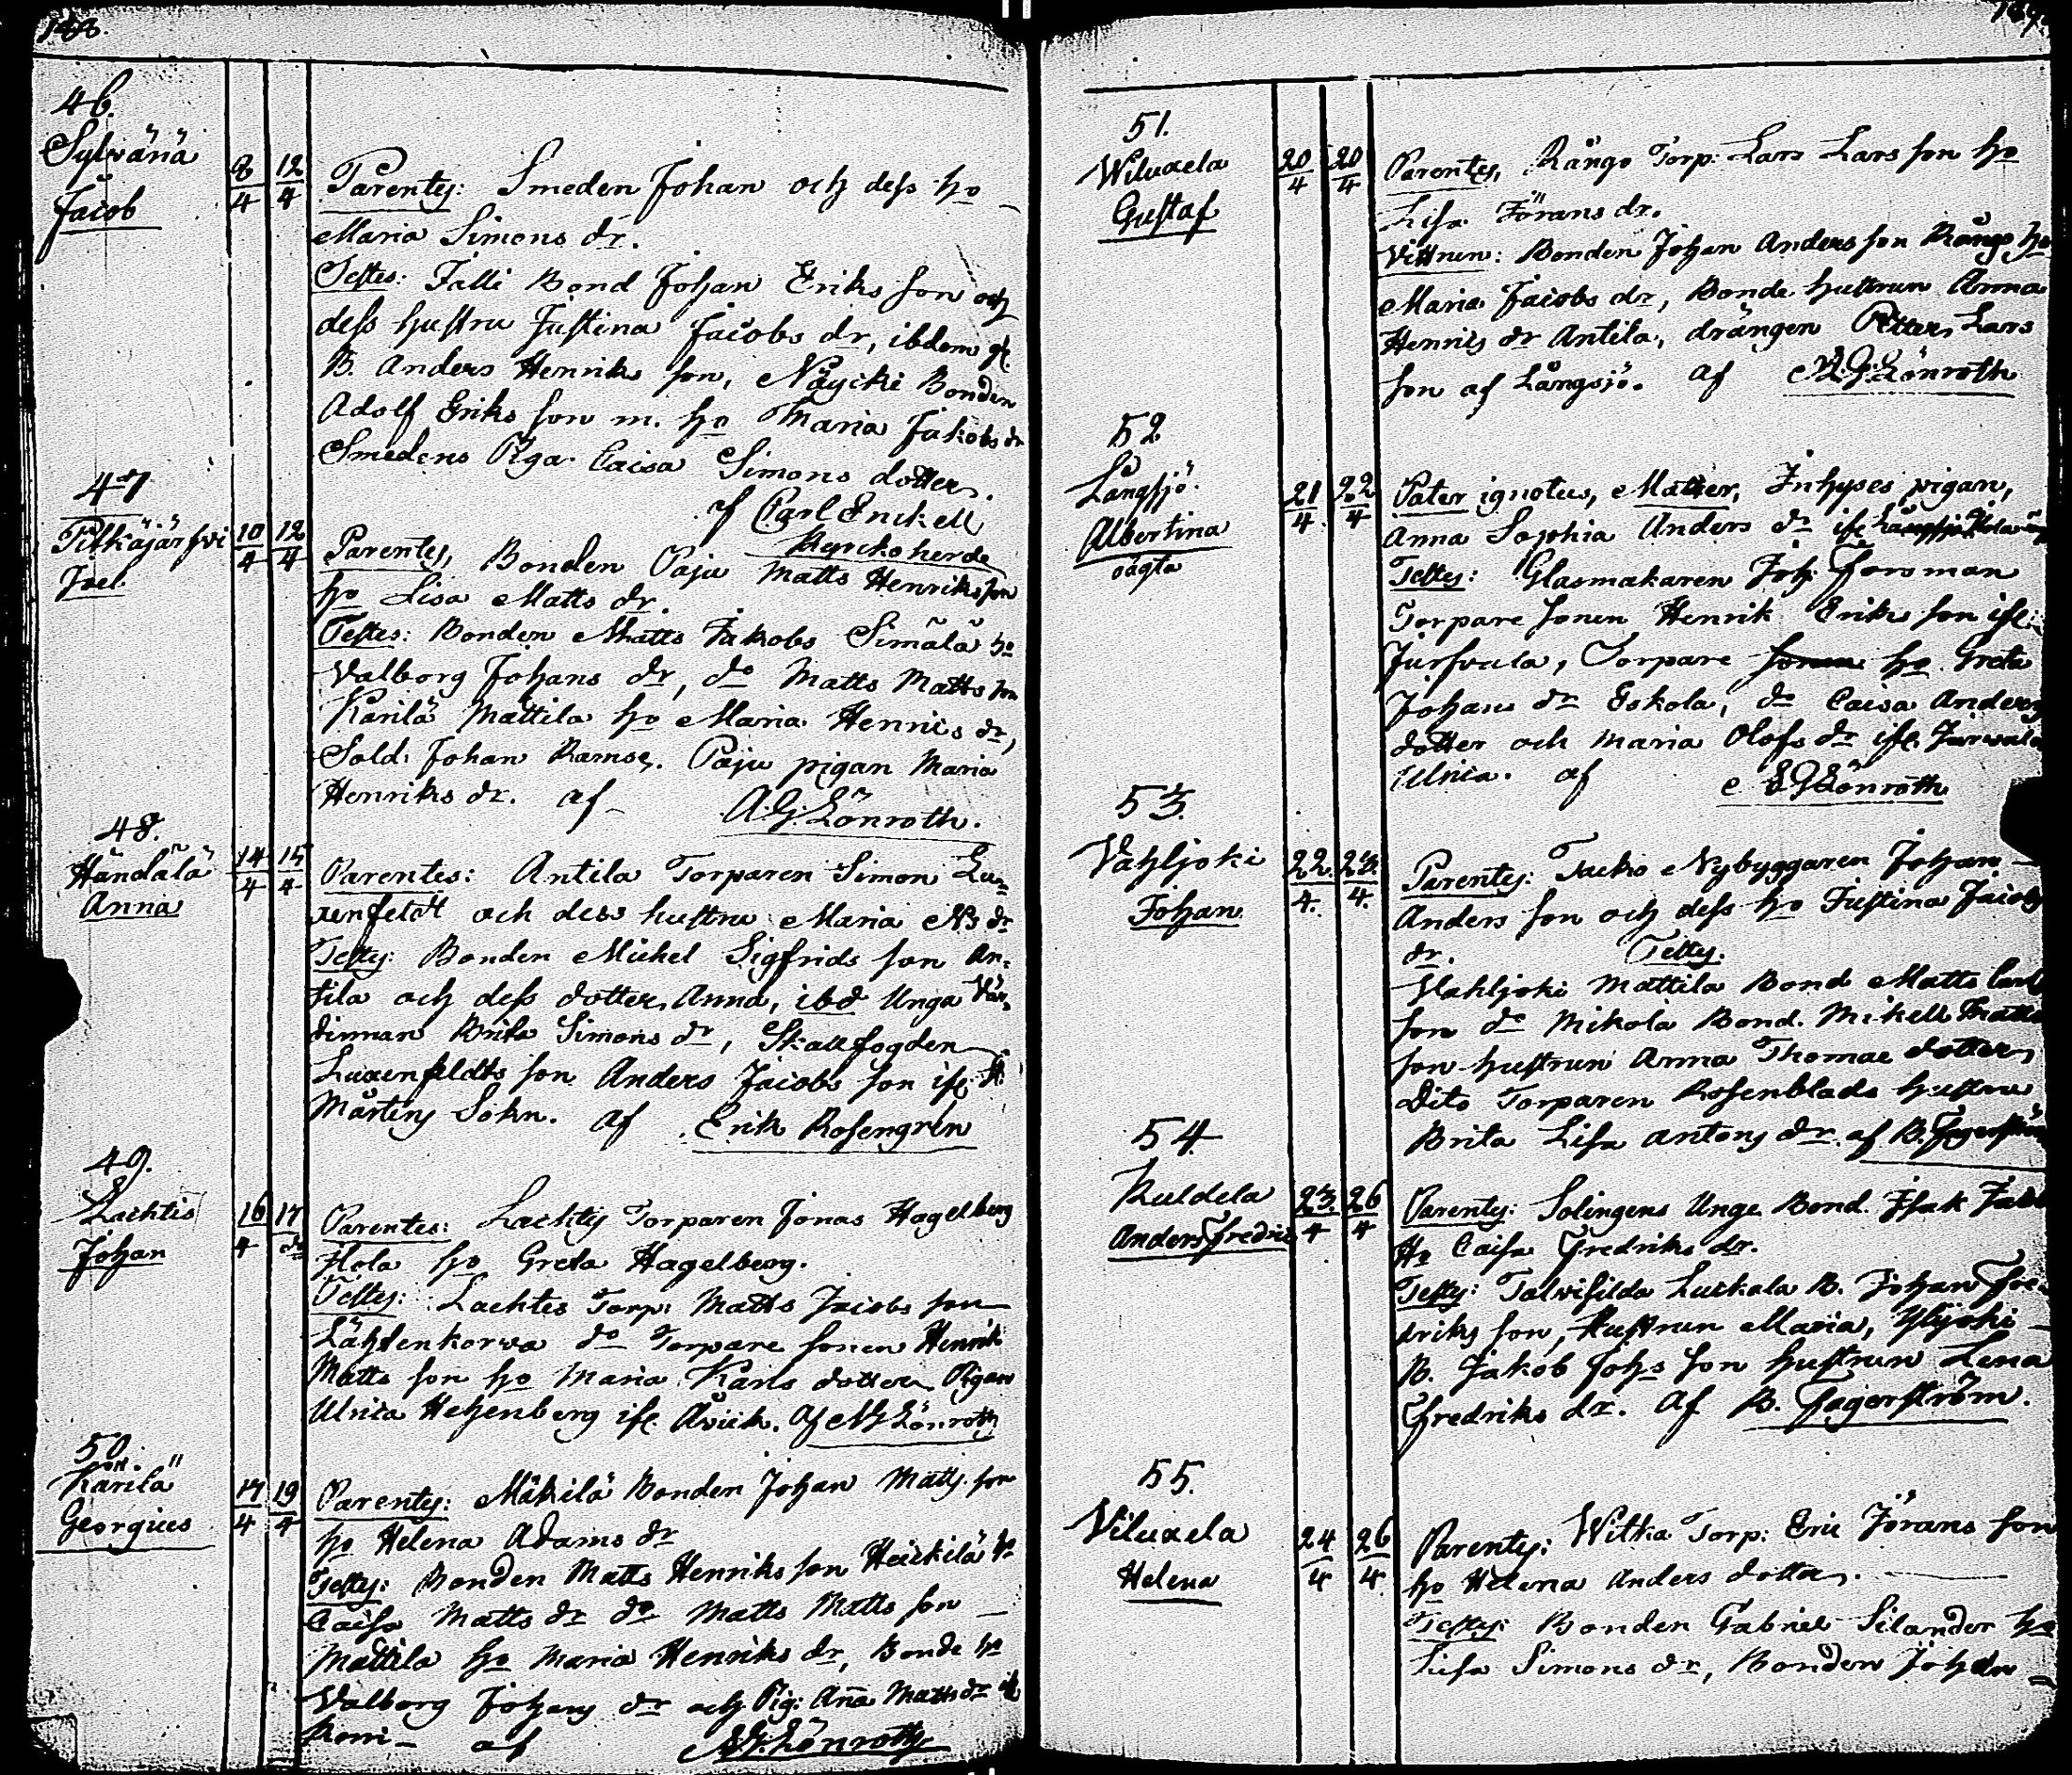 188.
46.
Sylvänä
Jacob
8/4 12/4
Parentes: Smeden Johan och dess ho
Maria Simons dr.
Testes: Jalli Bond Johan Eriks son och
dess hustru Justina Jacobs dr, ibdem gl.
B. Anders Henriks son, Näycki Bonden
Adolf Eriks son m. ho Maria Jakobs dr
Smedens Piga Caisa Simons dotter.
af Carl Enckell
Kyrckoherde
47
Pitkäjärfvi
Joel
10/4 12/4
Parentes, Bonden Paju Matts Henriks son
ho Lisa Matts dr.
Testes: Bonden Matts Jakobs Simälä ho
Valborg Johans dr, do Matts Matts son
Karilä Mattila ho Maria Henrics dr,
Sold. Johan Ramse. Paju pigan Maria
Henriks dr. af A.G. Lönroth.
48.
Händälä
Anna
14/4 15/4
Parentes: Antila Torparen Simon Lu=
xenfeldt och dess hustru Maria dr
Testes: Bonden Michel Sigfrids son An=
tila och dess dotter Anna, ibd Unga Vär=
dinnan Brita Simons dr, Skallfogden
Luxenfeldts son Anders Jacobs son ifr. St.
Mårtens Sokn. af Erik Rosengrén
49.
Lachtis
Johan
16/4 17/do
Parentes: Lachtis Torparen Jonas Hagelberg
Hola ho Greta Hagelberg.
Testes: Lachtes Torp: Matts Jacobs son
Lähtenkorwa do Torpare sonen Henrik
Matts son ho Maria Karls dotter Pigan
Ulrica Hehenberg ifr. Åviik. Af Lönroth
50.
Karilä
Georgius
17/4 19/4
Parentes: Mäkilä Bonden Johan Matts son
ho Helena Adams dr
Testes: Bonden Matts Henriks son Heickilä ho
Caisa Matts dr do Matts Matts son
Mattila ho Maria Henriks dr, Bonde ho
Valborg Johans dr och Pig: Aña Matts dr ifr
Komi af Lönroth
189.
51.
Wiluxela
Gustaf
20/4 20/4
Parentes, Rångo Torp: Lars Lars son ho
Lisa Jörans dr.
Vittnen: Bonden Johan Anders son Rångo ho
Maria Jacobs dr, Bonde hustrun Anna
Henrics dr Antila, drängen Petter Lars
son af Långsjö. af A.G. Lönroth
52
Långsjö
Albertina
oägta
21/4 22/4
Pater ignotus, Matter, Inhyses pigan,
Anna Sophia Anders dr ifr
Testes: Glasmakaren Joh. Forsman
Torpare sonen Henrik Eriks son ifr.
Jurfvala, Torpare sonen ho Greta
Johans dr Eskola, do Caisa Anders
dotter och Maria Olofs dr ifr Jurvala
Ulrica. af Lönroth
53.
Vahljoki
Johan
22/4 23/4
Parentes: Tacko Nybyggaren Johan
Anders son och dess ho Justina Jacobs
dr. Testes.
Vahljoki Mattila Bond Matts Carl
son do Mikola Bond. Mikell Matts
son hustrun Anna Thomae dotter
Dito Torparen Rosenblads hustru
Brita Lisa Antons dr af B. Fagerström
54.
Kuldela
Anders Fredric
23/4 26/4
Parentes: Solingens Unge Bond. Isak Jacobs
Ho Caisa Fredriks dr.
Testes: Talwisilda Luckala B. Johan Fre=
driks son, Hustrun Maria, Ylijoki
B. Jakob Johs son hustrun Lena
Fredriks dr. Af B. Fagerström.
55.
Viluxela
Helena
24/4 26/4
Parentes: Witka Torp: Eric Jörans son
ho Helena Anders dotter.
Testes: Bonden Gabriel Silander ho
Lisa Simons dr, Bonden Johan